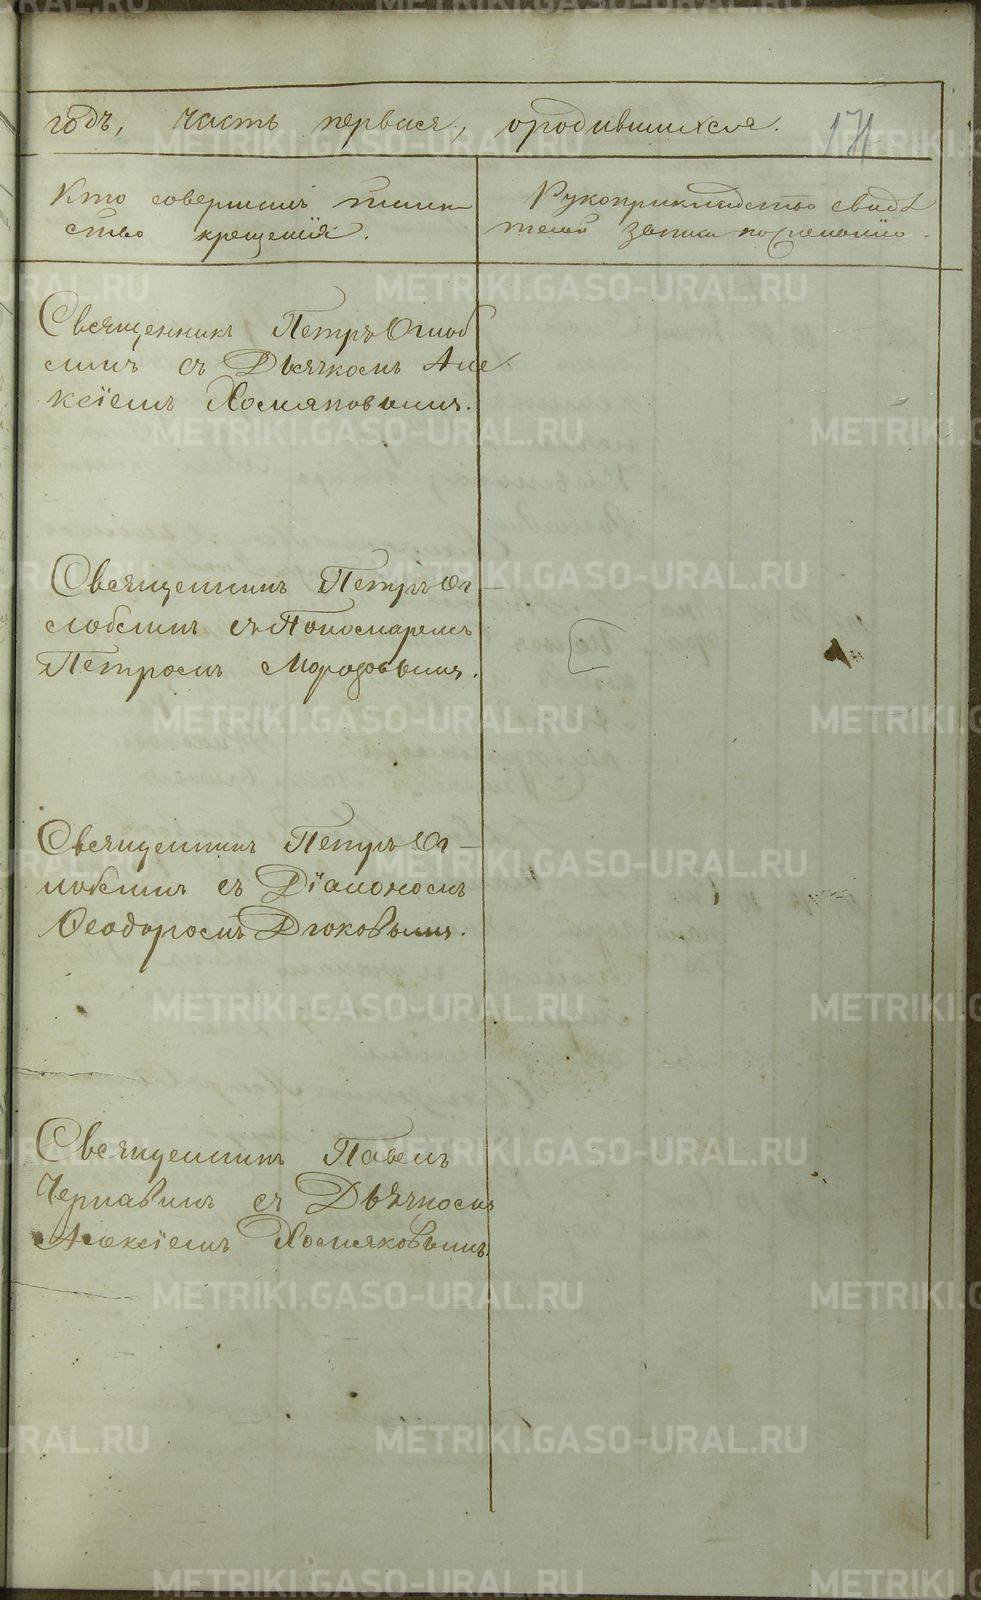 годъ, часть первая, ородившихся.
171
Кто совершилъ таин-
ство крещенія.
Рукоприкладство свидѣ
телей записи по желанію.
Священникъ Петръ Оглоб
линъ съ Дьячкомъ Але
ксіемъ Хомяковымъ.
Священникъ Петръ Ог
лоблинъ съ Пономаремъ
Петромъ Морозовымъ.
Священникъ Петръ Ог-
лоблинъ съ Діакономъ
Ѳеодоромъ Дюковымъ.
Священникъ Павелъ
Чернавинъ съ Дьячкомъ
Алексіемъ Хомяковымъ.
METRIKI.GASO-URAL.RU